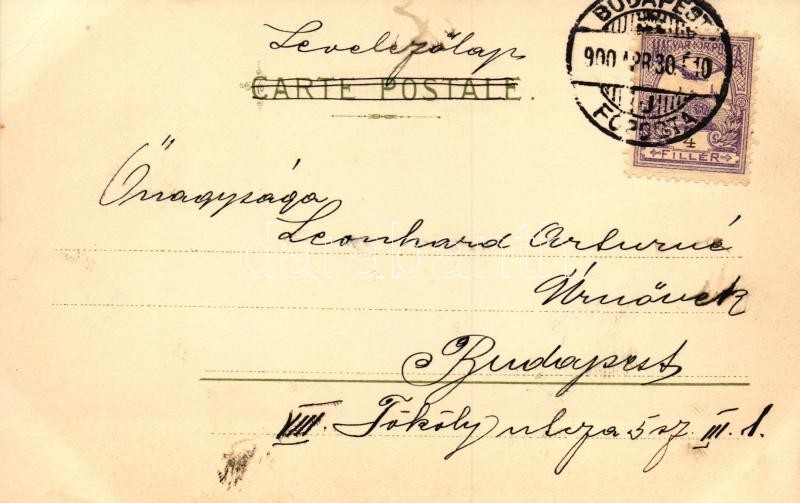 Levelezőlap
CARTE POSTALE.
BUDAPEST
900 APR 30.
FŐPOSTA
MAGYAR KIR. POSTA
4
FILLÉR
Őnagysága
Leonhard Arturné
Úrnőnek
darabanth
Budapest
VIII. Tököly utcza 5 sz III. 1.